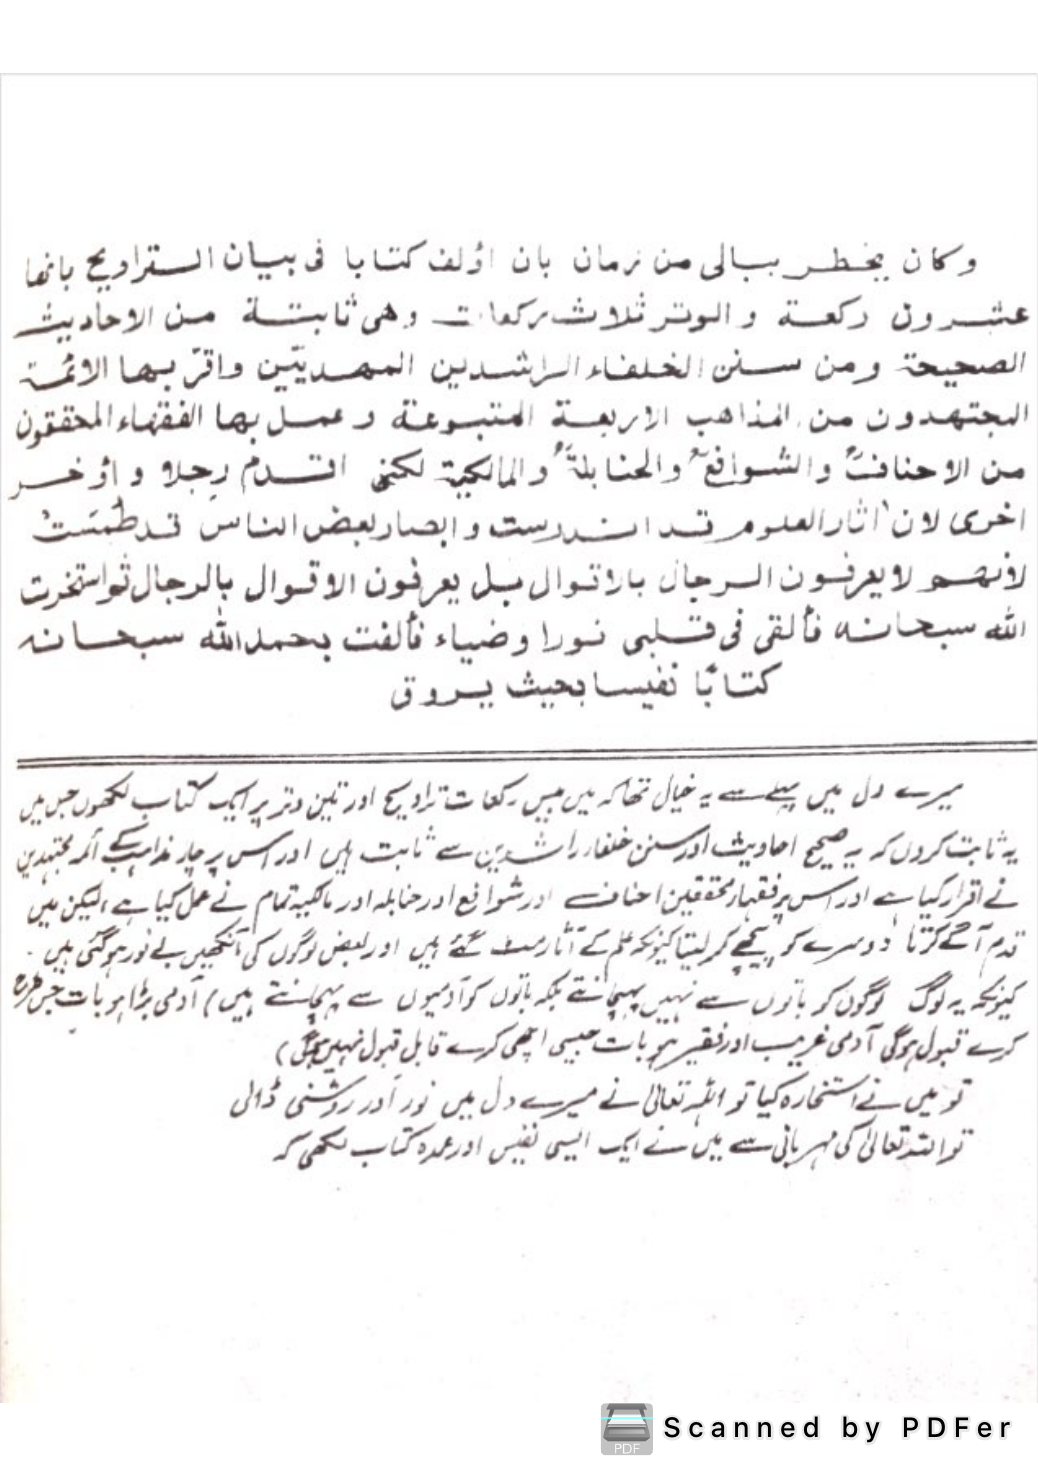 وكان يخطر ببالى من زمان بان اؤلف كتابا فى بيان التراويح بانها
عشرون ركعة و الوتر ثلاث ركعات وهى ثابتة من الاحاديث
الصحيحة ومن سنن الخلفاء الراشدين المهديّين واقرّ بها الائمّة
المجتهدون من المذاهب الاربعة المتبوعة وعمل بها الفقهاء المحققون
من الاحناف والشوافع والحنابلة والمالكية لكنى اقدم رجلا واؤخر
اخرى لان اثار العلوم قد اندرست وابصار لبعض الناس قد طمست
لانهم لا يعرفون الرجال بالاقوال بل يعرفون الاقوال بالرجال ثم استخرت
الله سبحانه فألقى فى قلبى نورا وضياء فألفت بحمد الله سبحانه
كتابًا نفيسا بحيث يروق
میرے دل میں پہلے سے یہ خیال تھا کہ میں بیس رکعات تراویح اور تین وتر پر ایک کتاب لکھوں جس میں
یہ ثابت کروں کہ یہ صحیح احادیث اور سنن خلفاء راشدین سے ثابت ہیں اور اس پر چار مذاہب کے ائمہ مجتہدین
نے اقرار کیا ہے اور اس پر فقہاء محققین احناف اور شوافع اور حنابلہ اور مالکیہ تمام نے عمل کیا ہے، لیکن میں
قدم آگے کرتا دوسرے کو پیچھے کر لیتا کیونکہ علم کے آثار مٹ گئے ہیں اور بعض لوگوں کی آنکھیں بے نور ہو گئی ہیں۔
کیونکہ یہ لوگ لوگوں کو باتوں سے نہیں پہچانتے بلکہ باتوں کو آدمیوں سے پہچانتے ہیں) آدمی بڑا ہو بات جس طرح
کرے قبول ہوگی آدمی غریب اور فقیر ہو بات جیسی اچھی کرے قابل قبول نہیں ہوگی)
تو میں نے استخارہ کیا تو اللہ تعالیٰ نے میرے دل میں نور اور روشنی ڈالی
تو اللہ تعالیٰ کی مہربانی سے میں نے ایک ایسی نفیس اور عمدہ کتاب لکھی کہ
PDF
Scanned by PDFer